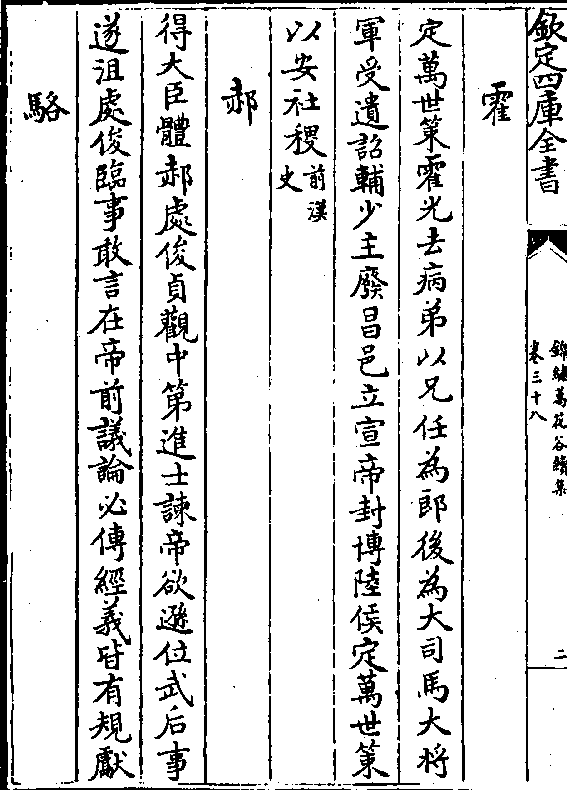 欽定四庫全書
錦繡萬花谷續集
卷三十八
二
霍
定萬世策霍光去病弟以兄任為郎後為大司馬大将
軍受遺詔輔少主廢昌邑立宣帝封博陸侯定萬世策
以安社稷前漢史
郝
得大臣體郝處俊貞觀中第進士諫帝欲遜位武后事
遂沮處俊臨事敢言在帝前議論必傅經義皆有規獻
駱